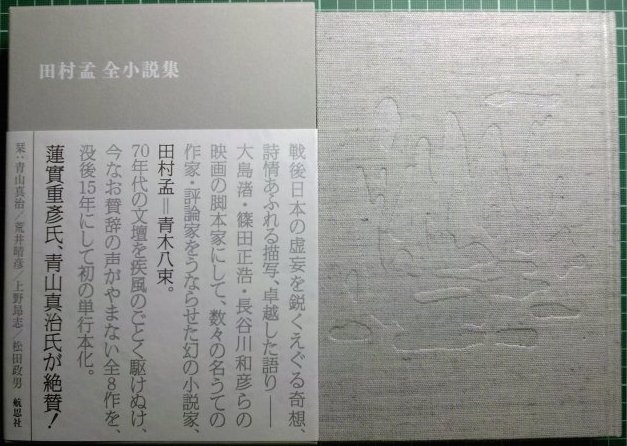 田村孟 全小説集
戦後日本の虚妄を鋭くえぐる奇想、
詩情あふれる描写、卓越した語り――
大島渚・篠田正浩・長谷川和彦らの
映画の脚本家にして、数々の名うての
作家・評論家をうならせた幻の小説家、
田村孟＝青木八束。
70年代の文壇を疾風のごとく駆けぬけ、
今なお賛辞の声がやまない全8作を、
没後15年にして初の単行本化。
蓮實重彦氏、青山真治氏が絶賛！
栞：青山真治／荒井晴彦／上野昻志／松田政男
航思社